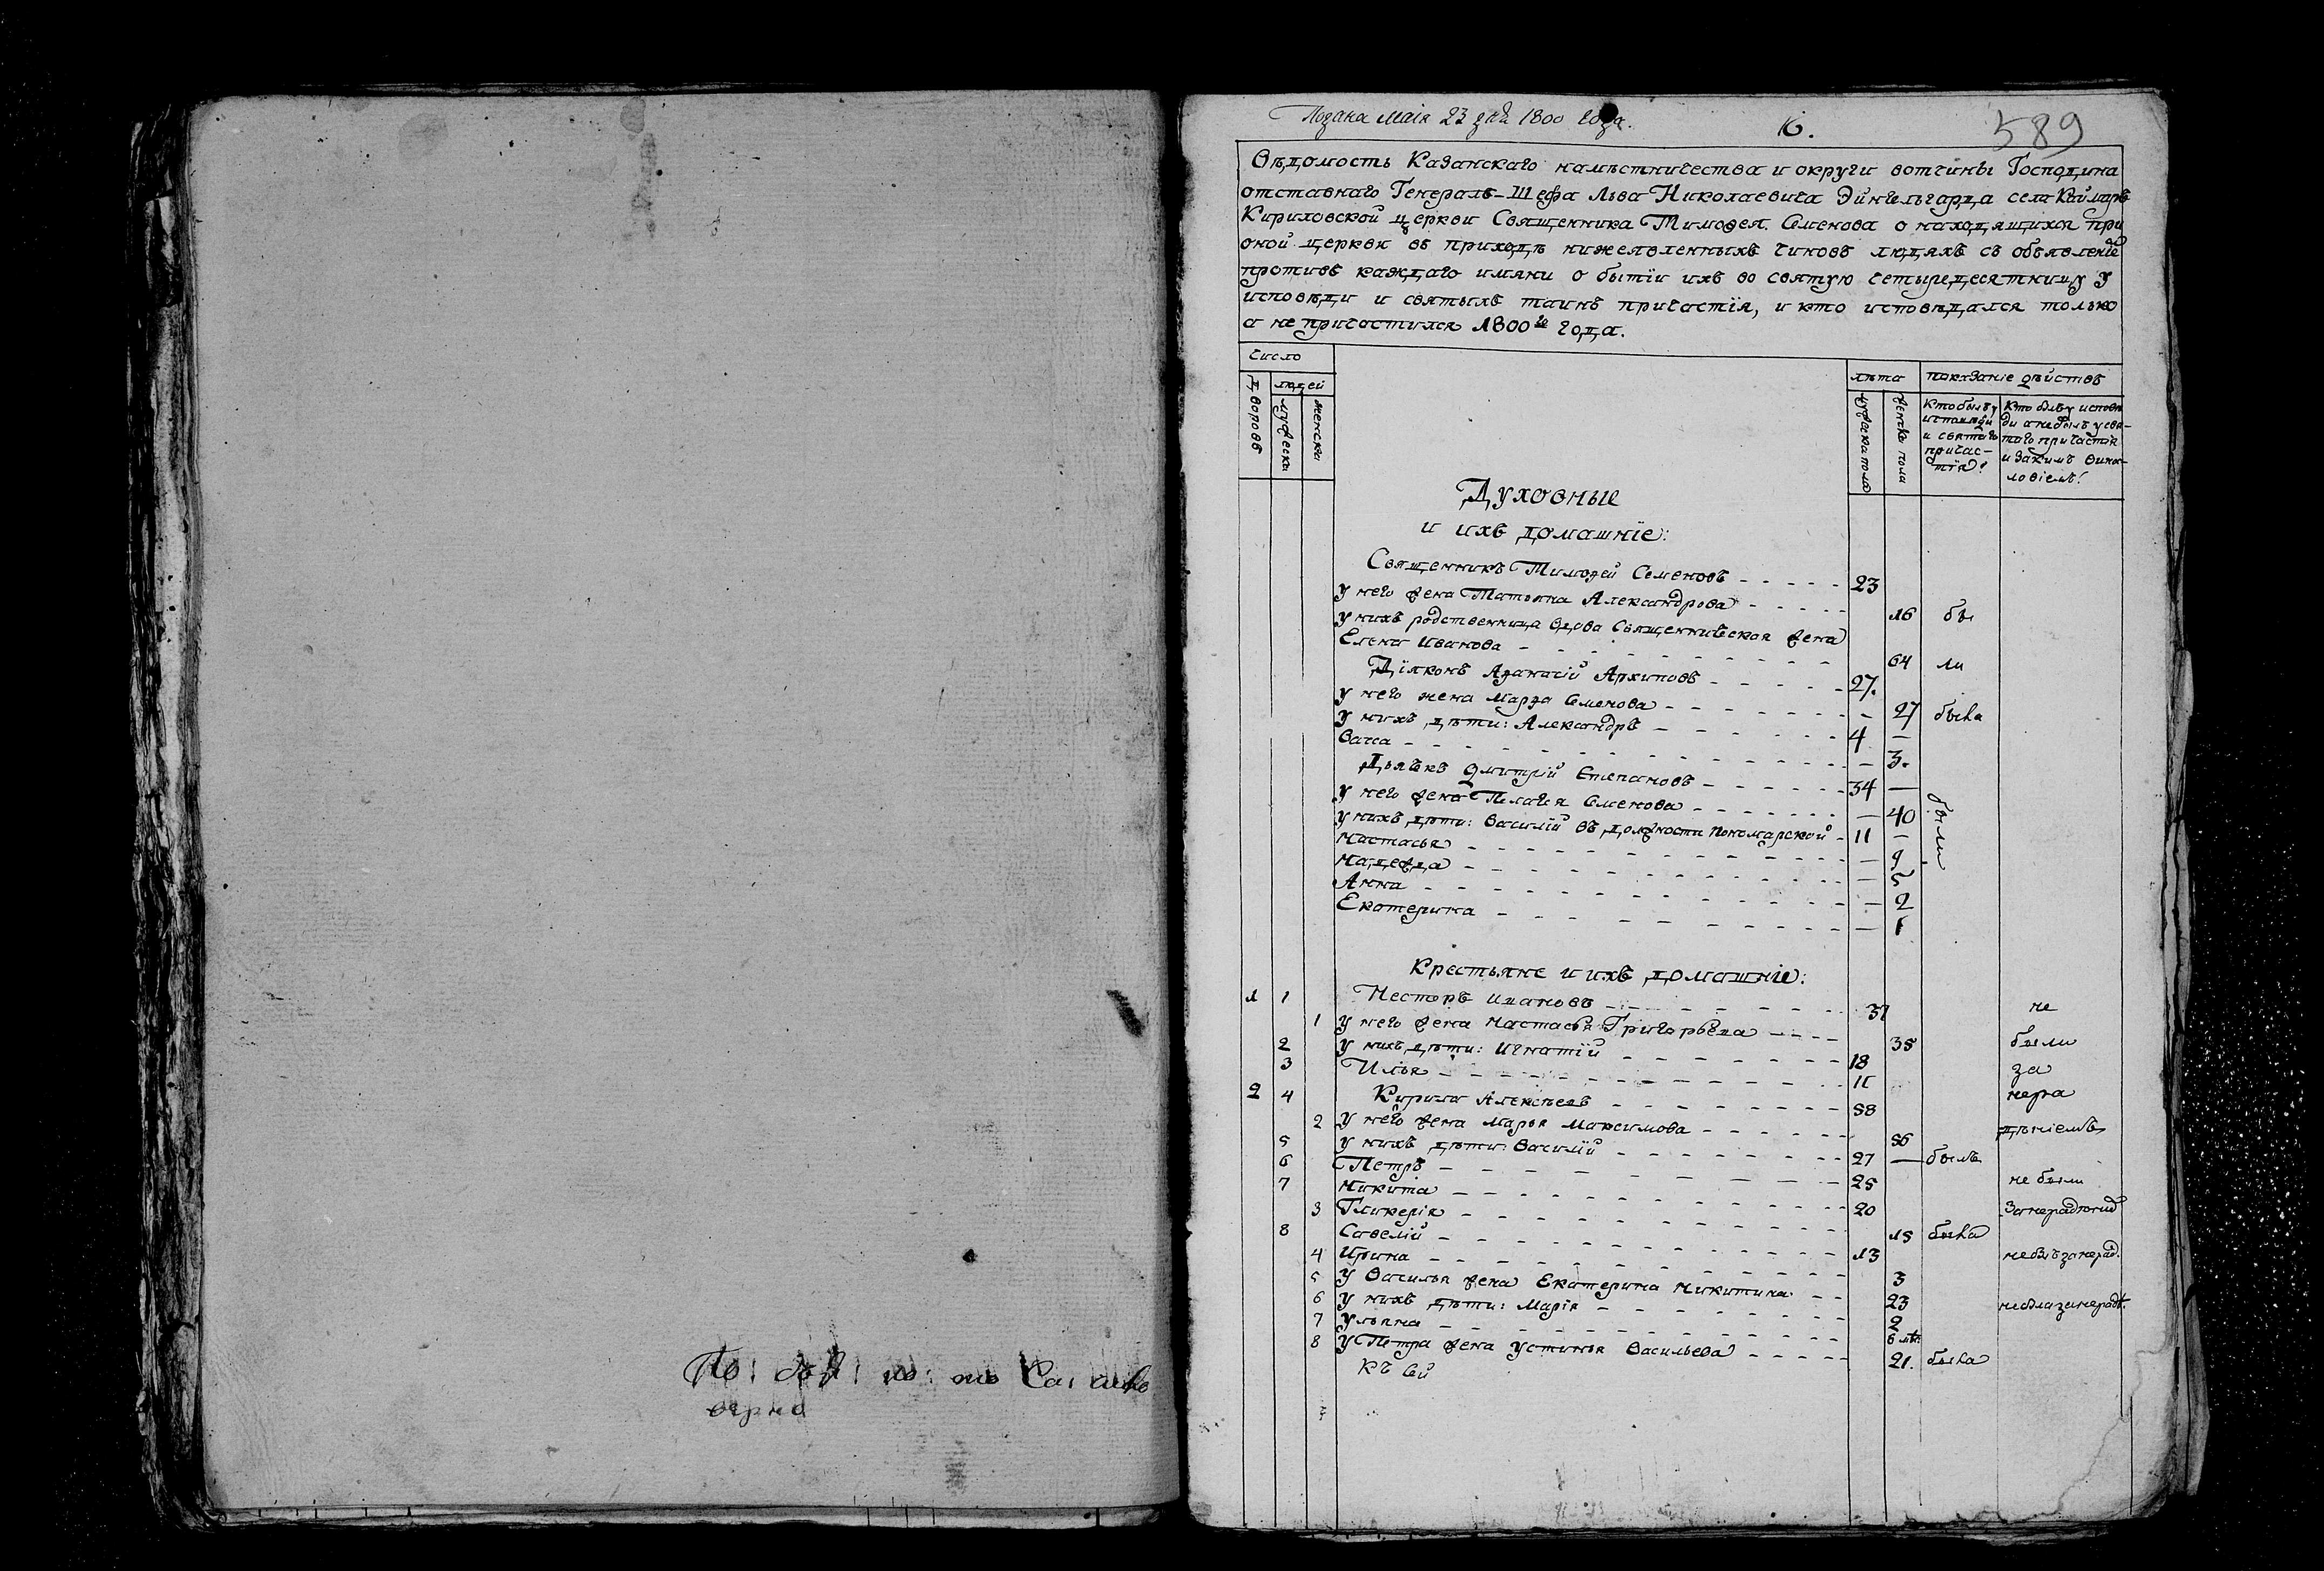 верно
Подана Маія 23 дня 1800 года.
6.
589
Вѣдомость Казанскаго намѣстничества и округи вотчины Господина
отставнаго Генералъ-Шефа Льва Николаевича Энгельгарда села Каймаръ
Кириловской церкви Священника Тимоѳея Семенова о находящихся при
оной церкви въ приходѣ нижеявленныхъ чиновъ людяхъ съ объявленіе
противъ каждаго имяни о бытіи ихъ во святую четыредесятницу у
исповѣди и святыхъ таинъ причастія, и кто исповѣдался только
а не причастился 1800го года.
число
дворовъ
людей
мужеска
женска
лѣта
мужеска пола
женска пола
показаніе дѣйствъ
Кто былъ у
исповѣди
и святаго
причас-
тія?
Кто былъ у исповѣ
ди а не былъ у свя-
таго причастія
и за какимъ вино-
ловіемъ?
Духовные
и ихъ домашніе:
Священникъ Тимоѳей Семеновъ 23
у него жена Татьяна Александрова 16 бы
у нихъ родственница вдова Священническая жена
Елена Иванова 64 ли
Діяконъ Аѳанасій Архиповъ 27.
у него жена Марѳа Семенова — 27 была
у нихъ дѣти: Александръ 4 —
Васса — 3.
Дьячкъ Дмитрій Степановъ 34 —
у него жена Пелагея Семенова — 40 были
у нихъ дѣти: Василій въ должности пономарской 11 —
Настасья —
Надежда —
Анна — 2
Екатерина — 1
Крестьяне и ихъ домашніе:
1 1 Несторъ Ивановъ 37 не
1 у него жена Настасья Григорьева 35 были
2 у нихъ дѣти: Игнатій 18 за
3 Илья 11 нера
2 4 Кирила Алексѣевъ 58 дѣніемъ
2 у него жена Марья Максимова 56
5 у нихъ дѣти: Василій 27 — былъ
6 Петръ 25 не были
7 Никита 20 за нерадѣніе
3 Гликерія 15 была
8 Савелій 13 не былъ за нерад.
4 Ирина 3
5 У Василья жена Екатерина Никитина 23 не была за нерадѣ.
6 у нихъ дѣти: Марія 2
7 Ульяна 6 мѣ:
8 У Петра жена Устинья Васильева 21. была